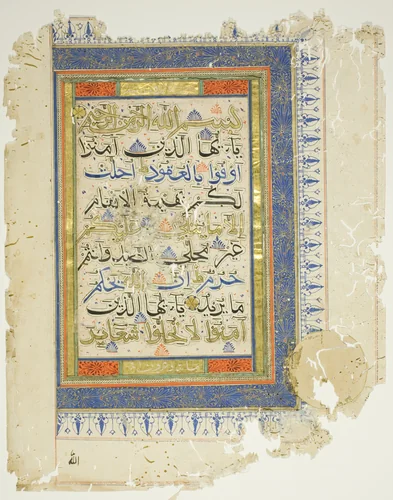 بسم الله الرحمن الرحيم
يايها الذين امنوا
اوفوا بالعقود احلت
لكم بهيمة الانعام
الا ما يتلى عليكم
غير محلي الصيد وانتم
حرم ان الله يحكم
ما يريد يايها الذين
امنوا لا تحلوا شعاير
الله